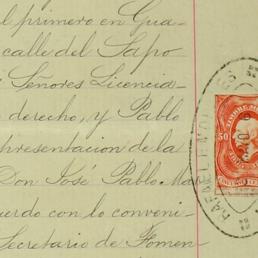 l primero en Gua-
calle del Sapo
Señores Licencia-
derecho, y Pablo
presentacion de la
Don José Pablo Ma
uerdo con lo conveni
Secretario de Fomen
50
RAFAEL